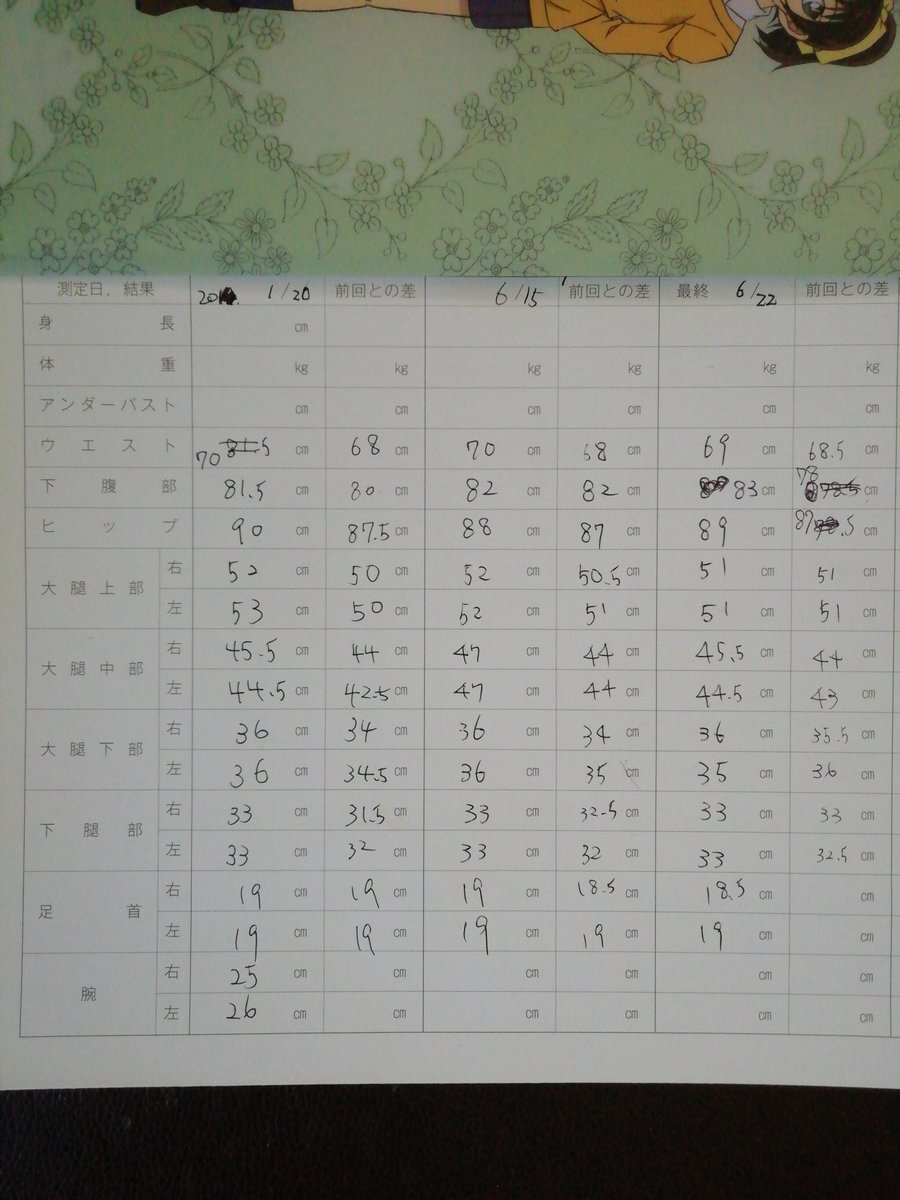 測定日、結果 1/20 前回との差 6/15 前回との差 最終 6/22 前回との差
身長 cm
体重 kg kg kg kg kg kg
アンダーバスト cm cm cm cm cm cm
ウエスト 70 81.5 cm 68 cm 70 cm 68 cm 69 cm 68.5 cm
下腹部 81.5 cm 80 cm 82 cm 82 cm 83 cm 78 cm
ヒップ 90 cm 87.5 cm 88 cm 87 cm 89 cm 87.5 cm
大腿上部 右 52 cm 50 cm 52 cm 50.5 cm 51 cm 51 cm
左 53 cm 50 cm 52 cm 51 cm 51 cm 51 cm
大腿中部 右 45.5 cm 44 cm 47 cm 44 cm 45.5 cm 44 cm
左 44.5 cm 42.5 cm 47 cm 44 cm 44.5 cm 43 cm
大腿下部 右 36 cm 34 cm 36 cm 34 cm 36 cm 35.5 cm
左 36 cm 34.5 cm 36 cm 35 cm 35 cm 36 cm
下腿部 右 33 cm 31.5 cm 33 cm 32.5 cm 33 cm 33 cm
左 33 cm 32 cm 33 cm 32 cm 33 cm 32.5 cm
足首 右 19 cm 19 cm 19 cm 18.5 cm 18.5 cm cm
左 19 cm 19 cm 19 cm 19 cm 19 cm cm
腕 右 25 cm cm cm cm cm cm
左 26 cm cm cm cm cm cm